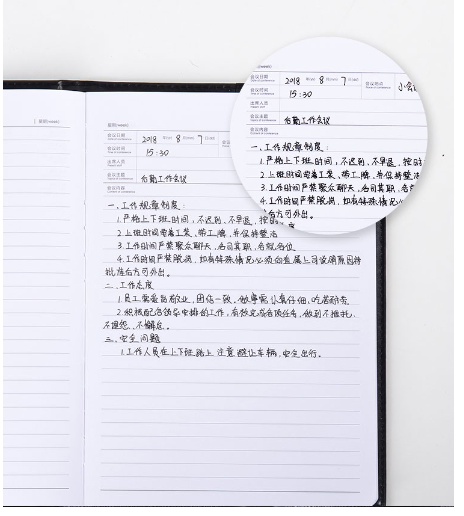 星期(week)
会议日期
2018 年(yr) 8 月(m) 7 日(d)
会议时间
15:30
出席人员
会议主题
后勤工作会议
会议内容
一、工作规章制度:
1.严格上下班时间,不迟到、不早退、按时
2.上班时间穿着工装、带工牌,并保持整洁
3.工作时间严禁聚众聊天,各司其职,各就各位
4.工作时间严禁脱岗,如有特殊情况必须向直属上司说明原因待
批准后方可外出。
二、工作态度
1.员工要爱岗敬业,团结一致,做事要认真仔细,吃苦耐劳
2.积极配合领导安排的工作,有效完成各项任务,做到不推托、
不埋怨、不懈怠。
三、安全问题
1.工作人员在上下班路上注意避让车辆,安全出行。
会议日期
2018 年(yr) 8 月(m) 7 日(d)
会议地点
小会
会议时间
15:30
出席人员
会议主题
后勤工作会议
会议内容
一、工作规章制度:
1.严格上下班时间,不迟到、不早退、按时
2.上班时间穿着工装、带工牌,并保持整洁
3.工作时间严禁聚众聊天,各司其职,各
4.工作时间严禁脱岗,如有特殊情况必